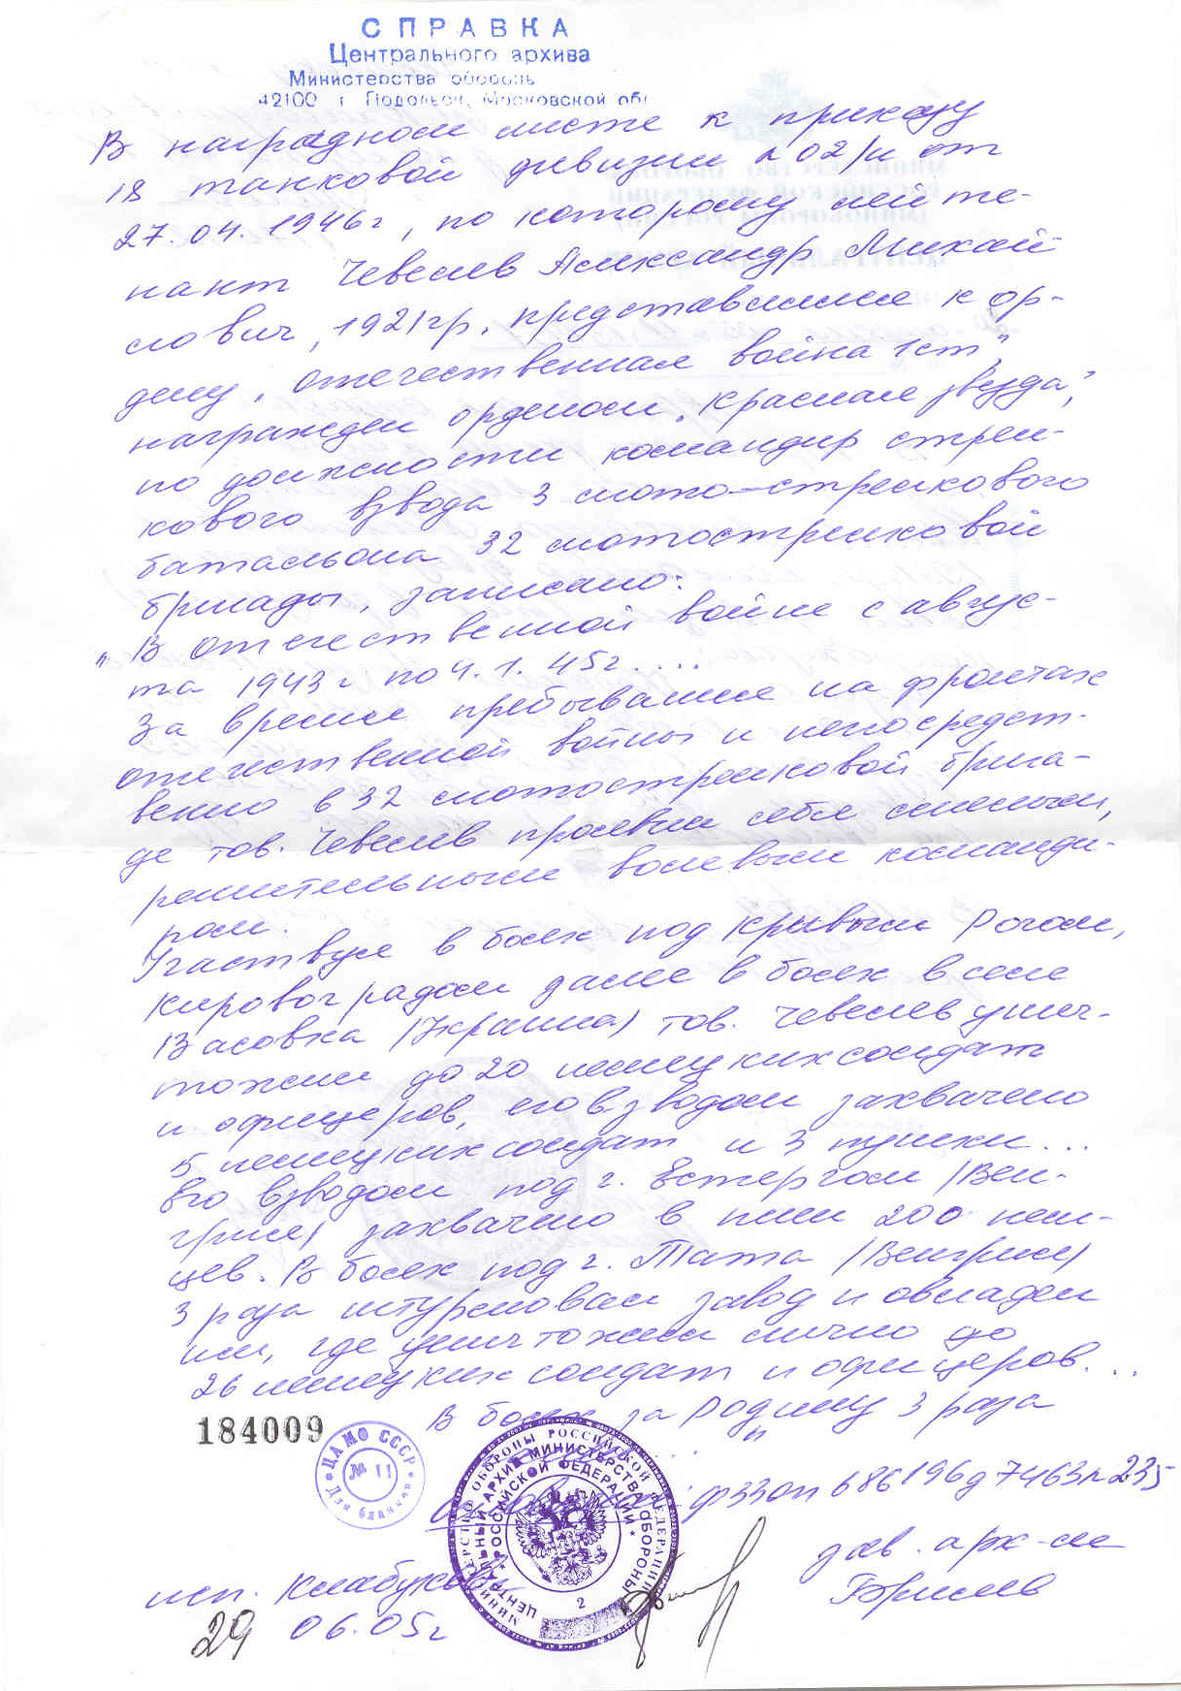 СПРАВКА
Центрального архива
Министерства обороны
42100 г. Подольск, Московской обл
В наградном листе к приказу
18 танковой дивизии № 02/н от
27.04.1946 г, по которому лейте-
нант Чевелев Александр Михай-
лович, 1921 г р. представлялся к ор-
дену „Отечественная война 1 ст",
награжден орденом „Красная звезда",
по должности командир стрел-
кового взвода 3 мото-стрелкового
батальона 32 мотострелковой
бригады, записано:
"В отечественной войне с авгус-
та 1943 г по 4.1.45г....
За время пребывания на фронтах
отечественной войны и непосредст-
венно в 32 мотострелковой брига-
де тов. Чевелев проявил себя смелым,
решительным волевым команди-
ром.
Участвуя в боях под Кривым Рогом,
Кировоградом далее в боях в селе
Васовка (Украина) тов. Чевелев унич-
тожил до 20 немецких солдат
и офицеров, его взводом захвачено
5 немецких солдат и 3 пушки...
Его взводом под г. Естергом (Вен-
грия) захвачено в плен 200 нем-
цев. В боях под г. Тата (Венгрия)
3 раза штурмовал завод и овладел
им, где уничтожил лично до
26 немецких солдат и офицеров...
В боях за Родину 3 раза
184009
ЦАМО СССР
№ 11
Для бланков
ф 33 оп 686196 д 7463 л 235
МИНИСТЕРСТВО ОБОРОНЫ РОССИЙСКОЙ ФЕДЕРАЦИИ
ЦЕНТРАЛЬНЫЙ АРХИВ МИНИСТЕРСТВА ОБОРОНЫ
РОССИЙСКОЙ ФЕДЕРАЦИИ
2
зав. арх-м
исп.
29 06.05г